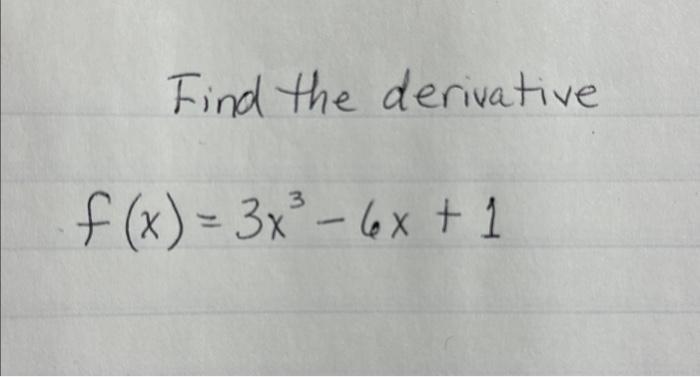 Find the derivative
f(x) = 3x³ - 6x + 1